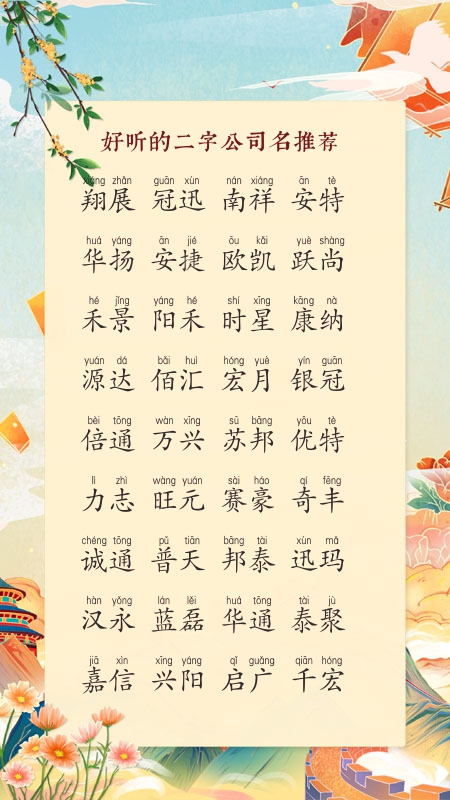 好听的二字公司名推荐
xiáng zhǎn guān xùn nán xiáng ān tè
翔展 冠迅 南祥 安特
huá yáng ān jié ōu kǎi yuè shàng
华扬 安捷 欧凯 跃尚
hé jǐng yáng hé shí xīng kāng nà
禾景 阳禾 时星 康纳
yuán dá bǎi huì hóng yuè yín guān
源达 佰汇 宏月 银冠
bèi tōng wàn xīng sū bāng yōu tè
倍通 万兴 苏邦 优特
lì zhì wàng yuán sài háo qí fēng
力志 旺元 赛豪 奇丰
chéng tōng pǔ tiān bāng tài xùn mǎ
诚通 普天 邦泰 迅玛
hàn yǒng lán lěi huá tōng tài jù
汉永 蓝磊 华通 泰聚
jiā xìn xīng yáng qǐ guǎng qiān hóng
嘉信 兴阳 启广 千宏